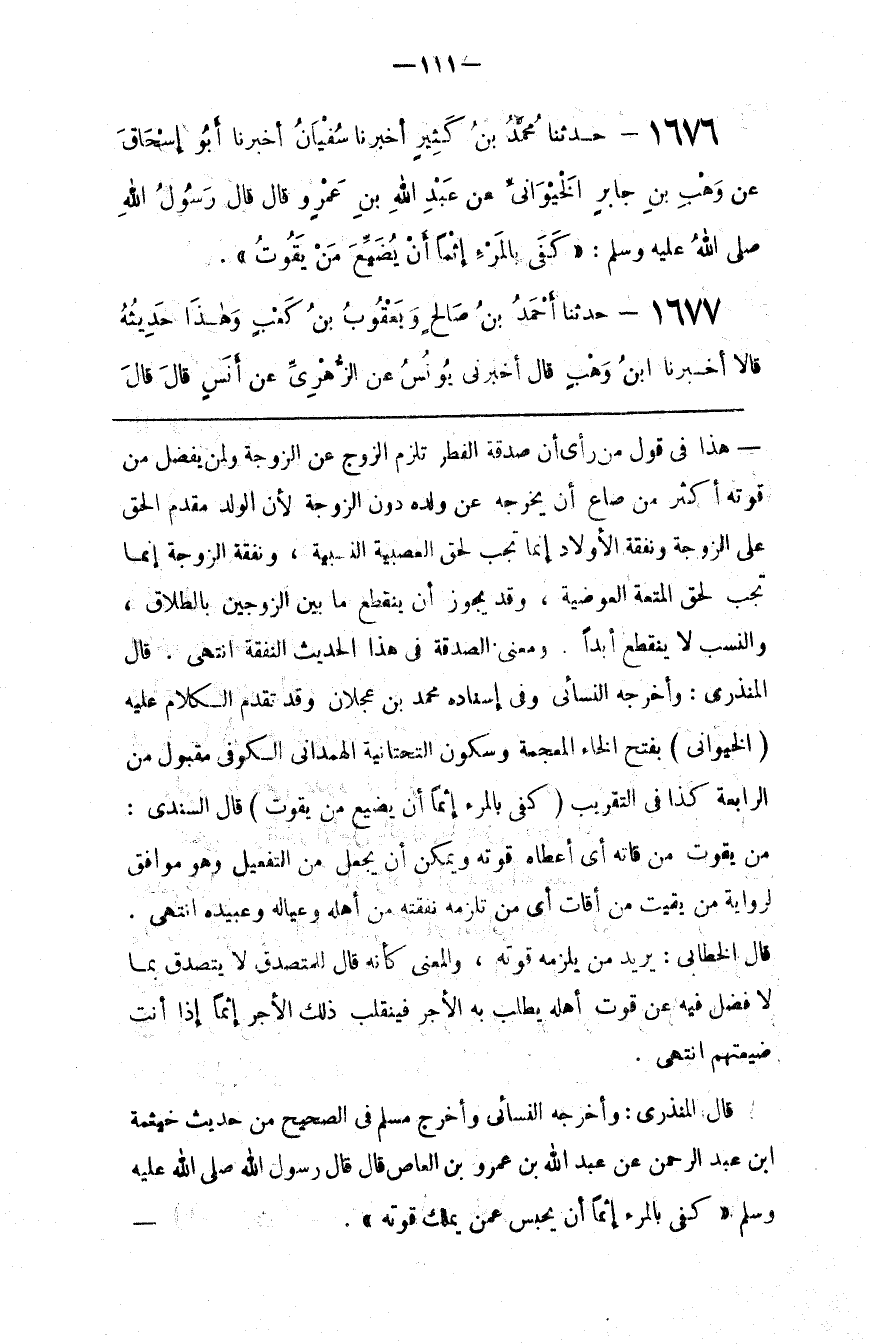 — ١١١ —
١٦٧٦ — حـدثنا مُحمَّدُ بنُ كَثِيرٍ أخبرنا سُفْيَانُ أخبرنا أَبُو إسْحَاقَ
عن وَهْبِ بنِ جابرٍ الَخْيْوَانىِّ عن عَبْدِ اللهِ بنِ عَمْرٍو قال قال رَسُولُ اللهِ
صلى اللهُ عليه وسلم : « كَفَى بالَمرْءِ إثْماً أَنْ يُضَيِّعَ مَنْ يَقُوتُ » .
١٦٧٧ — حدثنا أَحْمَدُ بنُ صَالحٍ وَيَعْقُوبُ بنُ كَعْبٍ وَهٰـذَا حَدِيثُهُ
قالا أخـبرنا ابنُ وَهْبٍ قال أخبرنى يُونُسُ عن الزُّهْرِىِّ عن أَنَسٍ قالَ قالَ
— هذا فى قول من رأى أن صدقة الفطر تلزم الزوج عن الزوجة ولمن يفضل من
قوته أكثر من صاع أن يخرجه عن ولده دون الزوجة لأن الولد مقدم الحق
على الزوجة ونفقة الأولاد إنما تجب لحق العصبية النسبية ، ونفقة الزوجة إنمـا
تجب لحق المتعة العوضية ، وقد يجوز أن ينقطع ما بين الزوجين بالطلاق ،
والنسب لا ينقطع أبداً . ومعنى الصدقة فى هذا الحديث النفقة انتهى . قال
المنذرى : وأخرجه النسائى وفى إسناده محمد بن عجلان وقد تقدم الـكلام عليه
( الخيوانى ) بفتح الخاء المعجمة وسكون التحتانية الهمدانى الـكوفى مقبول من
الرابعة كذا فى التقريب ( كفى بالمرء إثماً أن يضيع من يقوت ) قال السندى :
من يقوت من قاته أى أعطاه قوته ويمكن أن يجعل من التفعيل وهو موافق
لرواية من يقيت من أقات أى من تلزمه نفقته من أهله وعياله وعبيده انتهى .
قال الخطابى : يريد من يلزمه قوته ، والمعنى كأنه قال للمتصدق لا يتصدق بمـا
لا فضل فيه عن قوت أهله يطلب به الأجر فينقلب ذلك الأجر إثماً إذا أنت
ضيعتهم انتهى .
قال المنذرى : وأخرجه النسائى وأخرج مسلم فى الصحيح من حديث خيثمة
ابن عبد الرحمن عن عبد الله بن عمرو بن العاص قال قال رسول الله صلى الله عليه
وسلم « كفى بالمرء إثماً أن يحبس عمن يملك قوته » . —